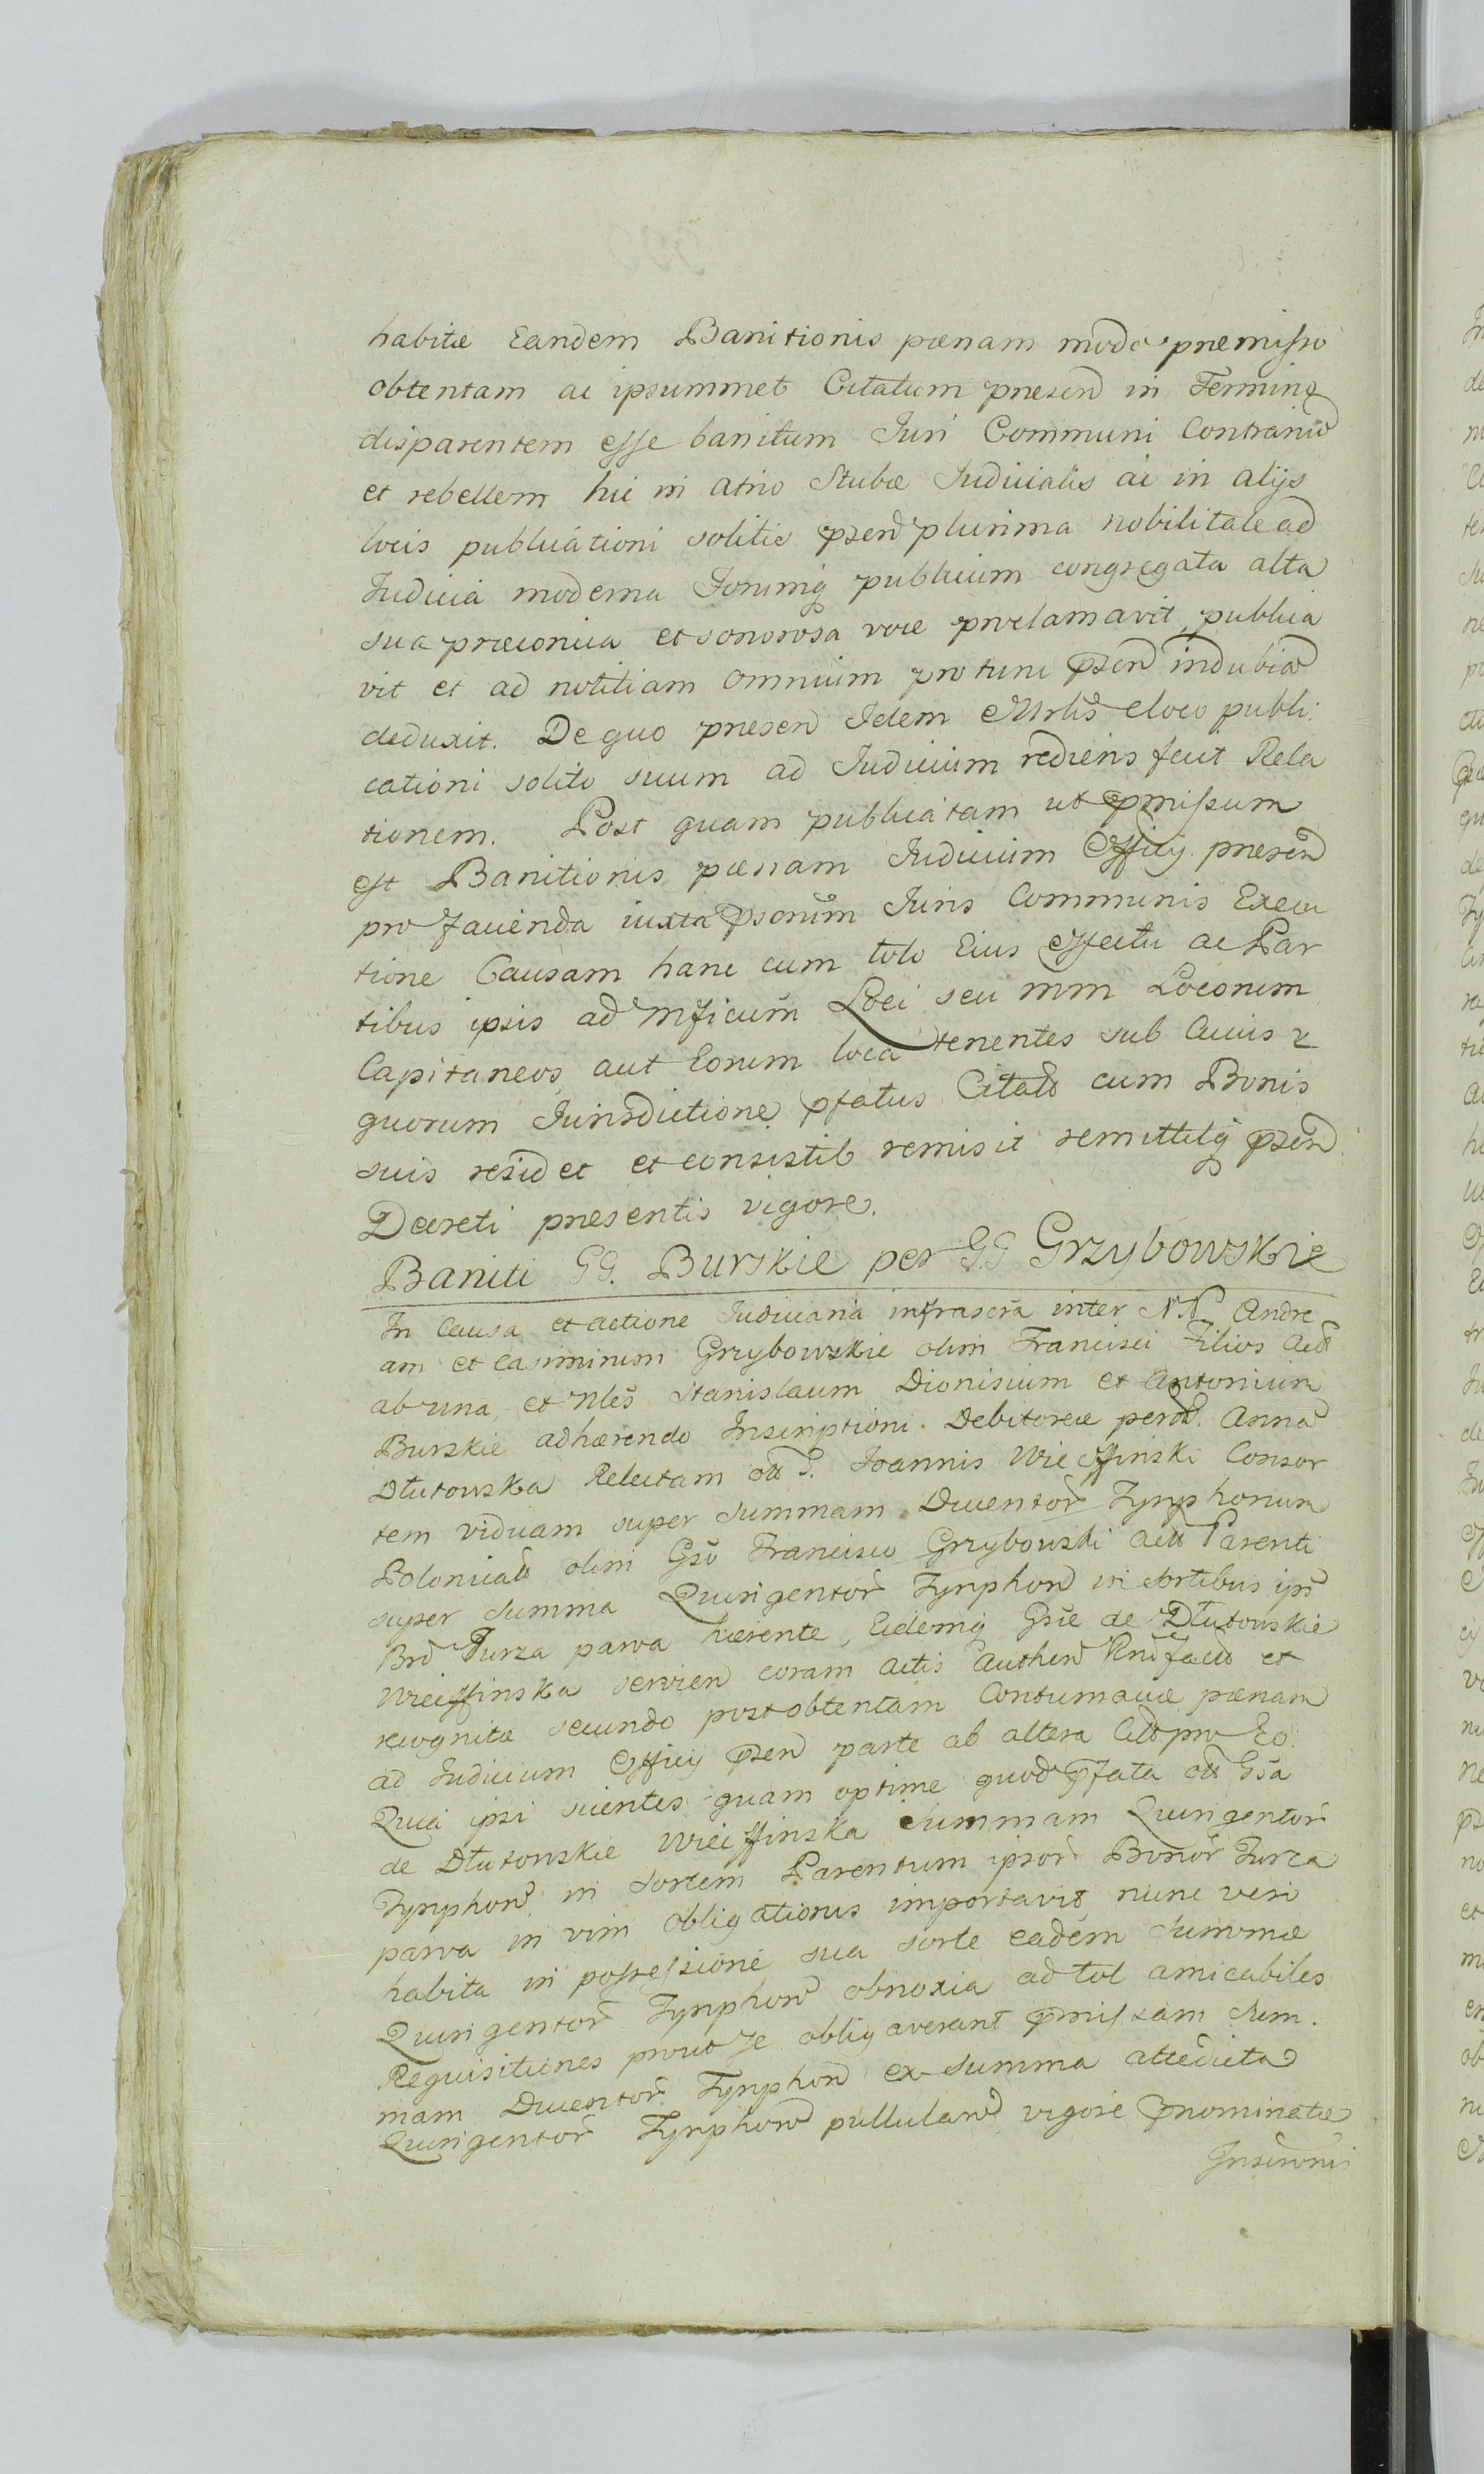 habitæ Eandem Banitionis pænam modo præmisso
obtentam ac ipsummet Citatum presen in Termino
disparentem esse banitum Juri Communi Contrariũ
et rebellem hic in atrio Stubæ Judicialis ac in alijs
locis publicationi solitis psen plurima nobilitate ad
Judicia moderna Forumq publicum congregata alta
sua præconica et sonorosa voce proclamavit, publica
vit et ad notitiam omnium pro tunc psen indubia
deduxit. De quo presen Idem Mrlis e loco publi:
cationi solito suum ad Judicium rediens fecit Rela
tionem. Post quam publicatam ut pmissum
est Banitionis pœnam Judicium Officij presen
pro facienda iuxta psorium Juris Communis Execu
tione Causam hanc cum toto Eius Effectu ac Par
tibus ipsis ad Mficum Loci seu Mm Locorum
Capitaneos aut Eorum loca tenentes sub Cuius 2
quorum Jurisdictione pfatus Citats cum Bonis
suis residet et consistit remisit remittitq psen
Decreti presentis vigore.
Baniti GG. Burskie per G.G Grzybowskie
In Causa et actione Judiciaria infrascra inter NN Andre
am et Casimirum Grzybowskie olim Francisci Filios Act
ab una, et Nles Stanislaum Dionisium et Antonium
Burskie adhærendo Inscriptioni Debitoreæ per Anna
Dłutowska Relictam ol G. Joannis Wieczffinski Consor
tem viduam super Summam Ducentor Tynphonum
Polonical olim Gso Francisco Grzybowski Act Parenti
super Summa Quingentor Tynphon in Sortibus ips
Bro Turza parva hærente, Eidemq Gsæ de Dłutowskie
Wieczffinska servien coram actis authen fact et
recognitæ secundo post obtentam Contumaciæ pænam
ad Judicium Officij psen parte ab altera Cit pro Eo:
Quia ipsi scientes quam optime quod pfata ol Gsa
de Dłutowskie Wieczffinska Summam Quingentor
Tynphon in Sortem Parentum ipsor Bonor Turza
parva in vim obligationis importavit nunc vero
habita in possessione sua sorte eadem Summæ
Quingentor Tynphon obnoxia ad tot amicabiles
Requisitiones prout se obligaverant pmissam Sum.
mam Ducentor Tynphon ex Summa attedicta
Quingentor Tynphon pullulan vigore pnominatæ
Inscronis